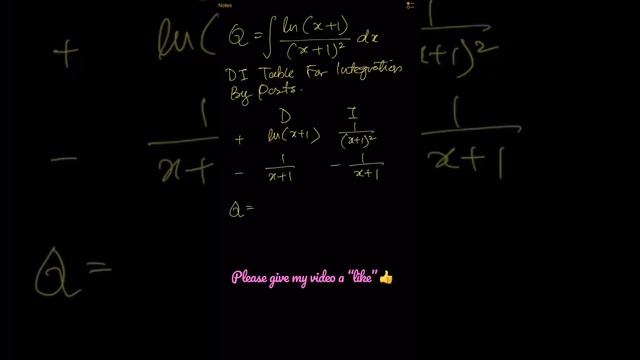 Notes
Q = ∫ ln(x+1)/(x+1)² dx
DI Table For Integration
By Parts.
D I
+ ln(x+1) 1/(x+1)²
- 1/x+1 - 1/x+1
Q =
Please give my video a "like" 👍